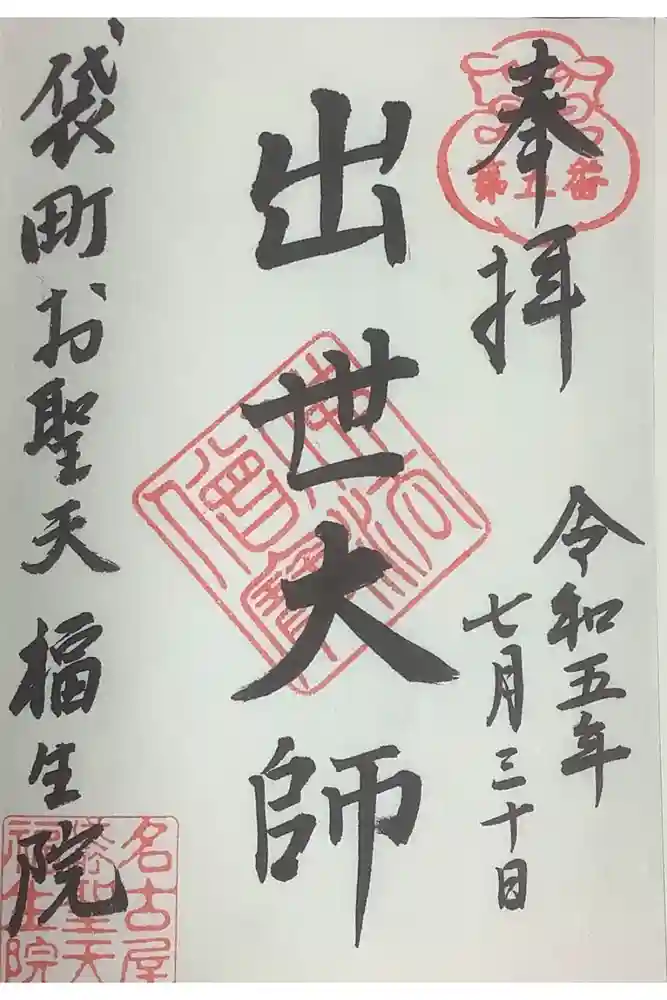 奉拝
第五番
令和五年
七月三十日
出世大師
佛法僧寳
袋町お聖天 福生院
名古屋
袋聖天
福生院